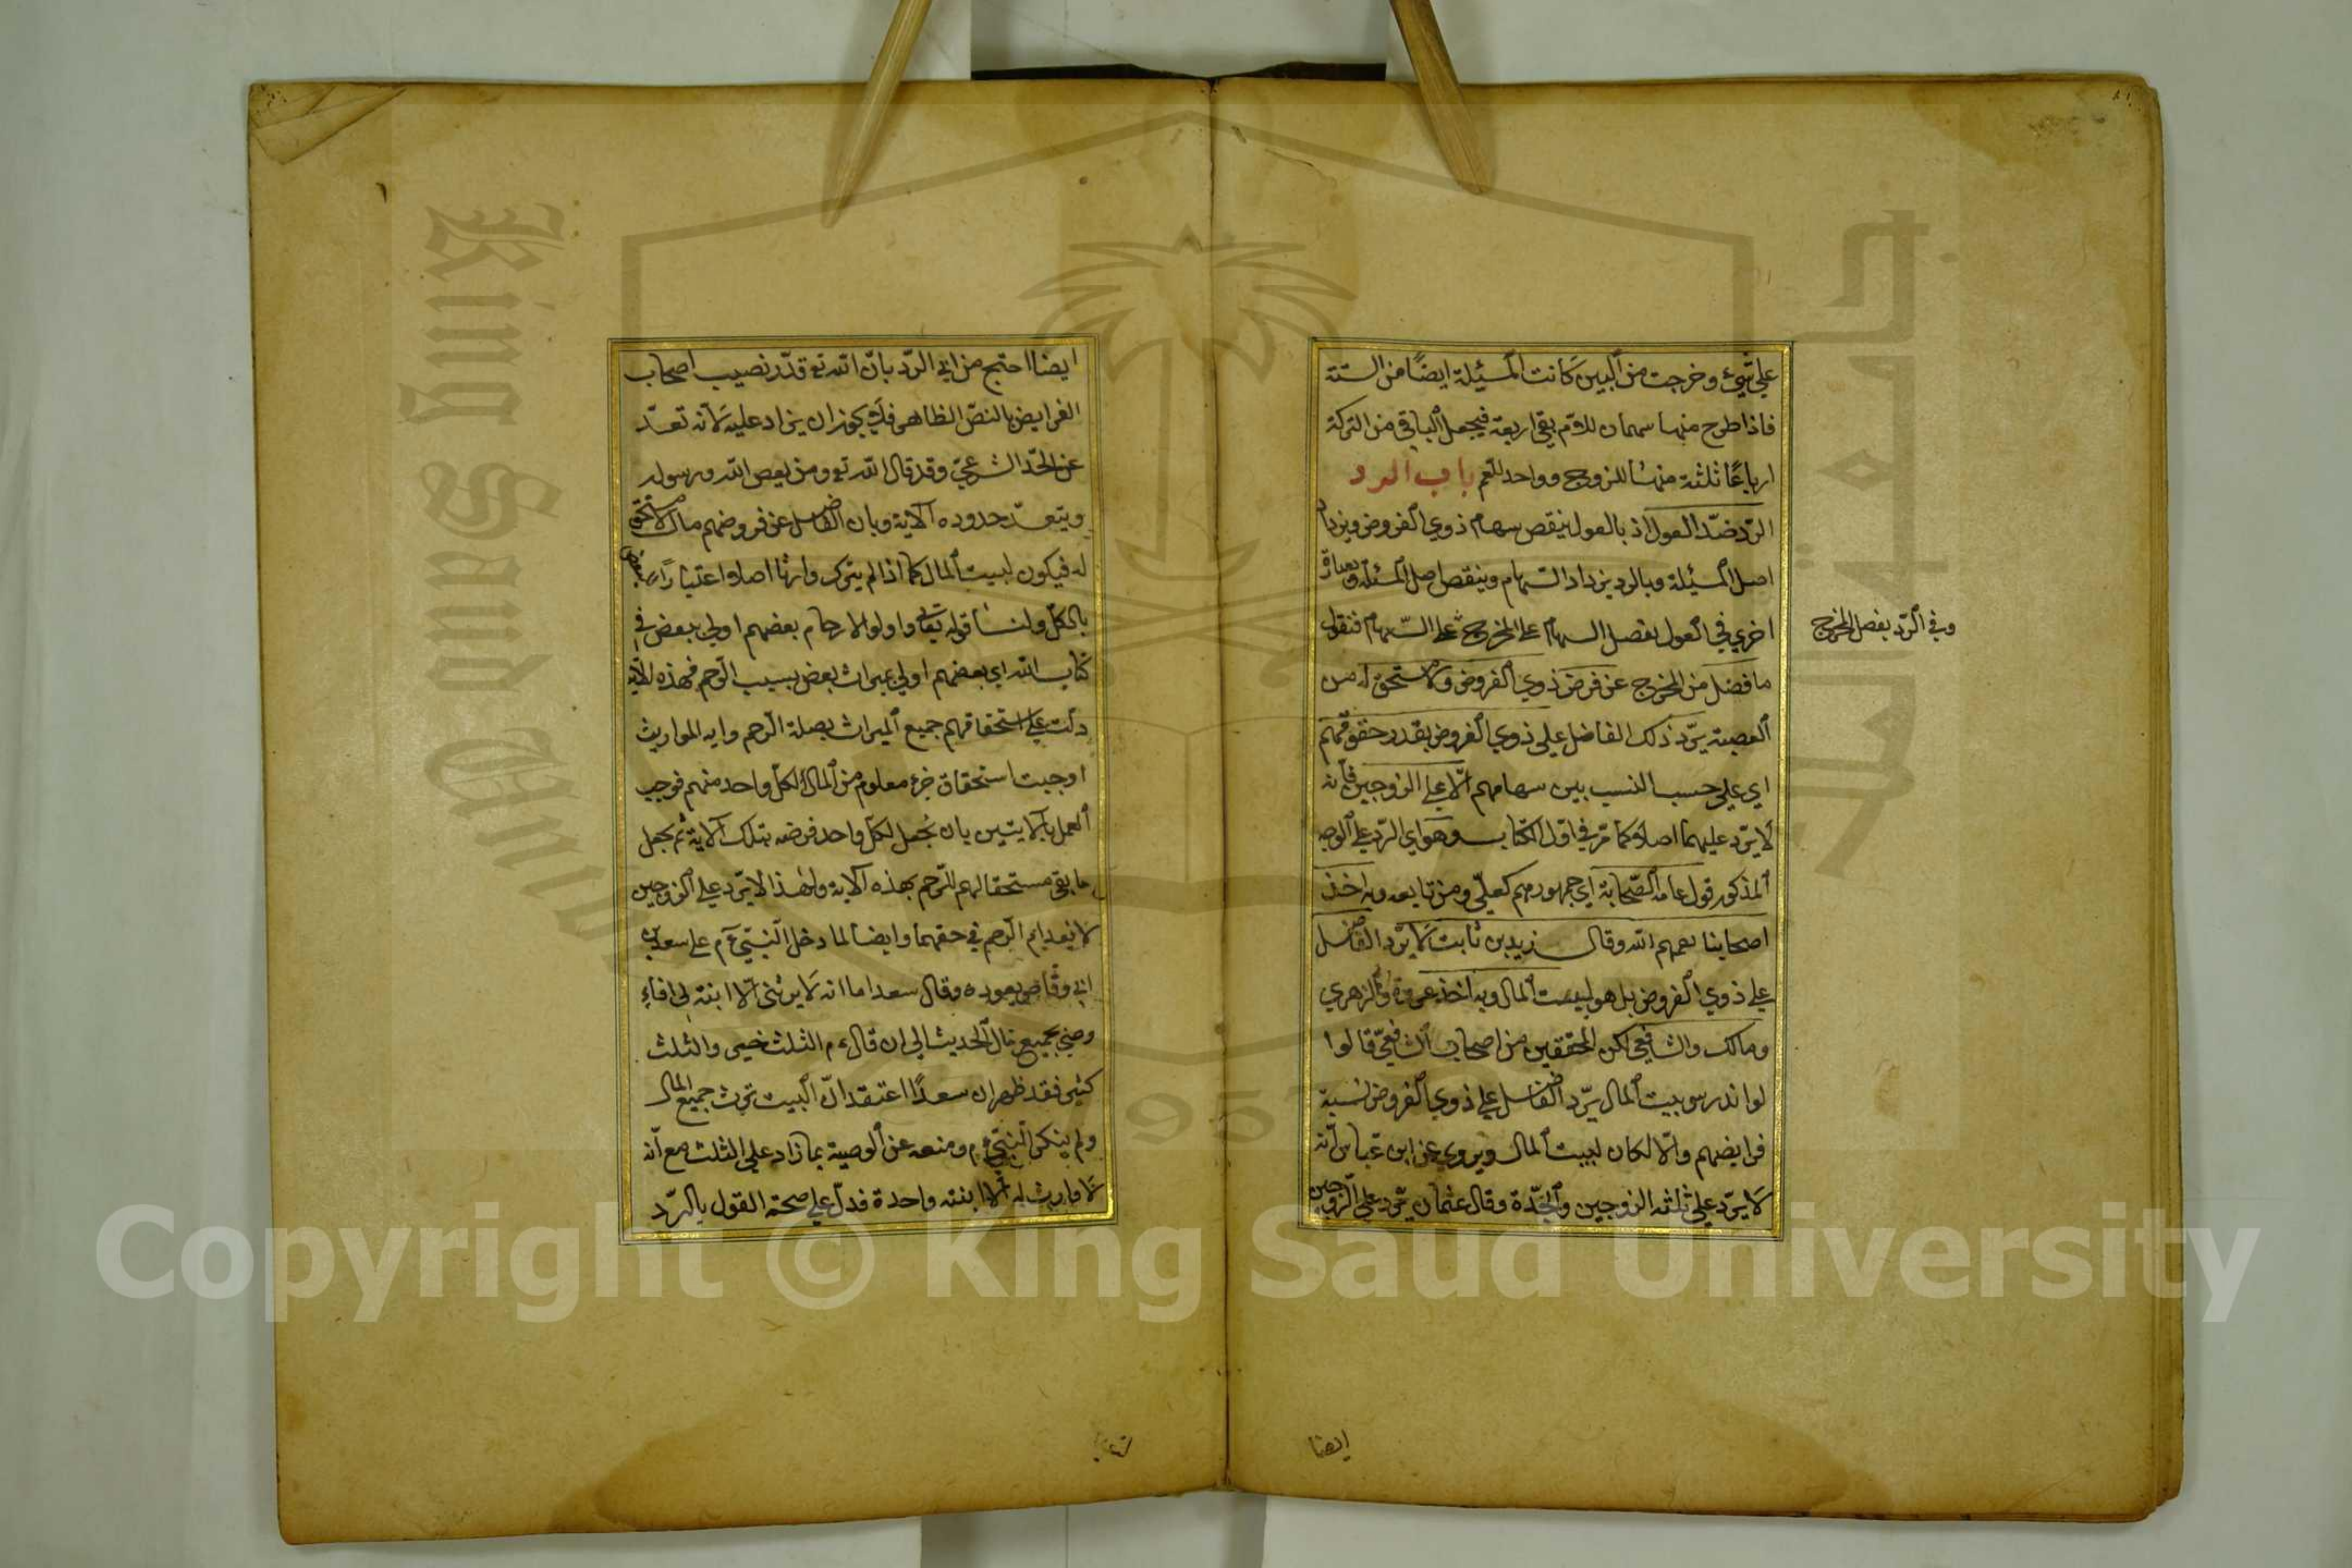 على شيء وخرجت من البين كانت المسئلة ايضًا من الستة
فاذا طرح منها سهمان للام بقى اربعة فيجعل الباقي من التركة
ارباعًا ثلثة منها للزوج وواحد للعم باب الرد
الرّد ضدّ العول اذ بالعول ينقص سهام ذوي الفروض ويزداد
اصل المسئلة وبالرد يزداد السهام وينقص اصل المسئلة وبعبارة
اخري في العول يفضل السهام على المخرج على السّهام فنقول
وفي الرّد يفضل المخرج
ما فضل من المخرج عن فرض ذوي الفروض ولا مستحق له من
العصبة يرّد ذلك الفاضل على ذوي الفروض بقدر حقوقهم
اي على حسب النسب بين سهامهم الّا على الزوجين فانه
لا يرّد عليهما اصلا كما مرّ في اوّل الكتاب وهو اي الرّد على الوجه
المذكور قول عامه الصّحابة اي جمهورهم كعلّي ومن تابعه وبه اخذ
اصحابنا رحمهم الله وقال زيد بن ثابت لا يرّد الفاضل
على ذوي الفروض بل هو لبيت المال وبه اخذ عروة والزهري
ومالك والشافعي لكن المحققين من اصحاب الشافعيّ قالوا
لو اندرس بيت المال يرّد الفاضل على ذوي الفروض نسبة
فرايضهم والّا لكان لبيت المال ويروى عن ابن عباس انّه
لا يرّد على ثلثه الزوجين والجدّة وقال عثمان يرّد على الزّوجين
ايضا
ايضا احتج من ابى الرّد بانّ الله تع قدّر نصيب اصحاب
الفرايض بالنصّ الظاهر فلا يجوز ان يزاد عليه لانه تعدّ
عن الحّد الشرعيّ وقد قال الله تع ومن يعص الله ورسوله
ويتعدّ حدوده الاية وبان الفاضل عن فروضهم مال لا مستحق
له فيكون لبيت المال كما اذا لم يترك وارثا اصلا اعتبارًا للبعض
بالكل ولنا قوله تعالى واولوا الارحام بعضهم اولى ببعض في
كتاب الله اي بعضهم اولى بميراث بعض بسبب الرّحم فهذه الاية
دلت على استحقاقهم جميع الميراث بصلة الرّحم وايه المواريث
اوجبت استحقاق جزء معلوم من المال لكل واحد منهم فوجب
العمل بالايتين بان يجعل لكل واحد فرضه بتلك الاية ثم يجعل
ما بقى مستحقا لهم للرّحم بهذه الاية ولهذا لا يرّد على الزوجين
لانعدام الرّحم في حقهما وايضا لما دخل النّبيّ عم على سعد بن
ابي وقاص يعوده وقال سعد اما انه لا يرثني الّا ابنة لي افاء
وصي بجميع مال الحديث الى ان قال عم الثلث خير والثلث
كثير فقد ظهر ان سعدًا اعتقد انّ البيت ترث جميع المال
ولم ينكر النّبيّ عم ومنعه عن الوصية بما زاد على الثلث مع انّه
لا وارث له الّا ابنته واحدة فدلّ على صحة القول بالرّد
Copyright © King Saud University